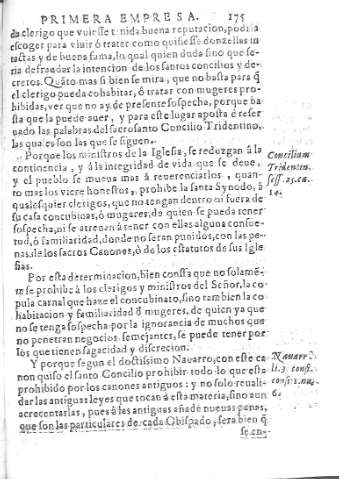 PRIMERA EMPRESA. 175
da clerigo que vuiesse tenida buena reputacion, podria
escoger para viuir ó tratar como quisiesse donzellas in
tactas y de buena fama, lo qual quien duda sino que se
ria defraudar la intencion de los santos concilios y de-
cretos. Quãto mas si bien se mira, que no basta para q̃
el clerigo pueda cohabitar, ó tratar con mugeres pro-
hibidas, ver que no ay de presente sospecha, porque ba
sta que la puede auer, y para este lugar aposta è reser
uado las palabras del sacrosanto Concilio Tridentino,
las quales son las que se siguen.
Porque los ministros de la Iglesia, se reduzgan á la
continencia, y á la integridad de vida que se deue,
y el pueblo se mueua mas á reuerenciarlos, quan-
to mas los viere honestos, prohibe la santa Synodo, á
qualesquier clerigos, que no tengan dentro ni fuera de
su casa concubinas, ó mugares, de quien se pueda tener
sospecha, ni se atreuan á tener con ellas alguna consue-
tud, ó familiaridad, donde no seran punidos, con las pe-
nas, de los sacros Canones, ó de los estatutos de sus Igle
sias.
Concilium
Tridentin.
sess. 25. ca.
14.
Por esta determinacion, bien consta que no solamẽ-
te se prohibe á los clerigos y ministros del Señor, la co-
pula carnal que haze el concubinato, sino tambien la co
habitacion y familiaridad ó mugeres, de quien ya que
no se tenga sospecha por la ignorancia de muchos que
no penetran negocios semejantes, se puede tener por
los que tienen sagacidad y discrecion.
Y porque segun el doctissimo Nauarro, con este ca
non quiso el santo Concilio prohibir todo lo que esta
prohibido por los canones antiguos: y no solo reuali-
dar las antiguas leyes que tocan á esta materia, sino aun
acrecentarlas, pues á las antiguas añade nueuas penas,
que son las particulares de cada Obispado, sera bien q̃
se en-
Nauarr.
li. 3. consi.
cons. 1. nu.
6.